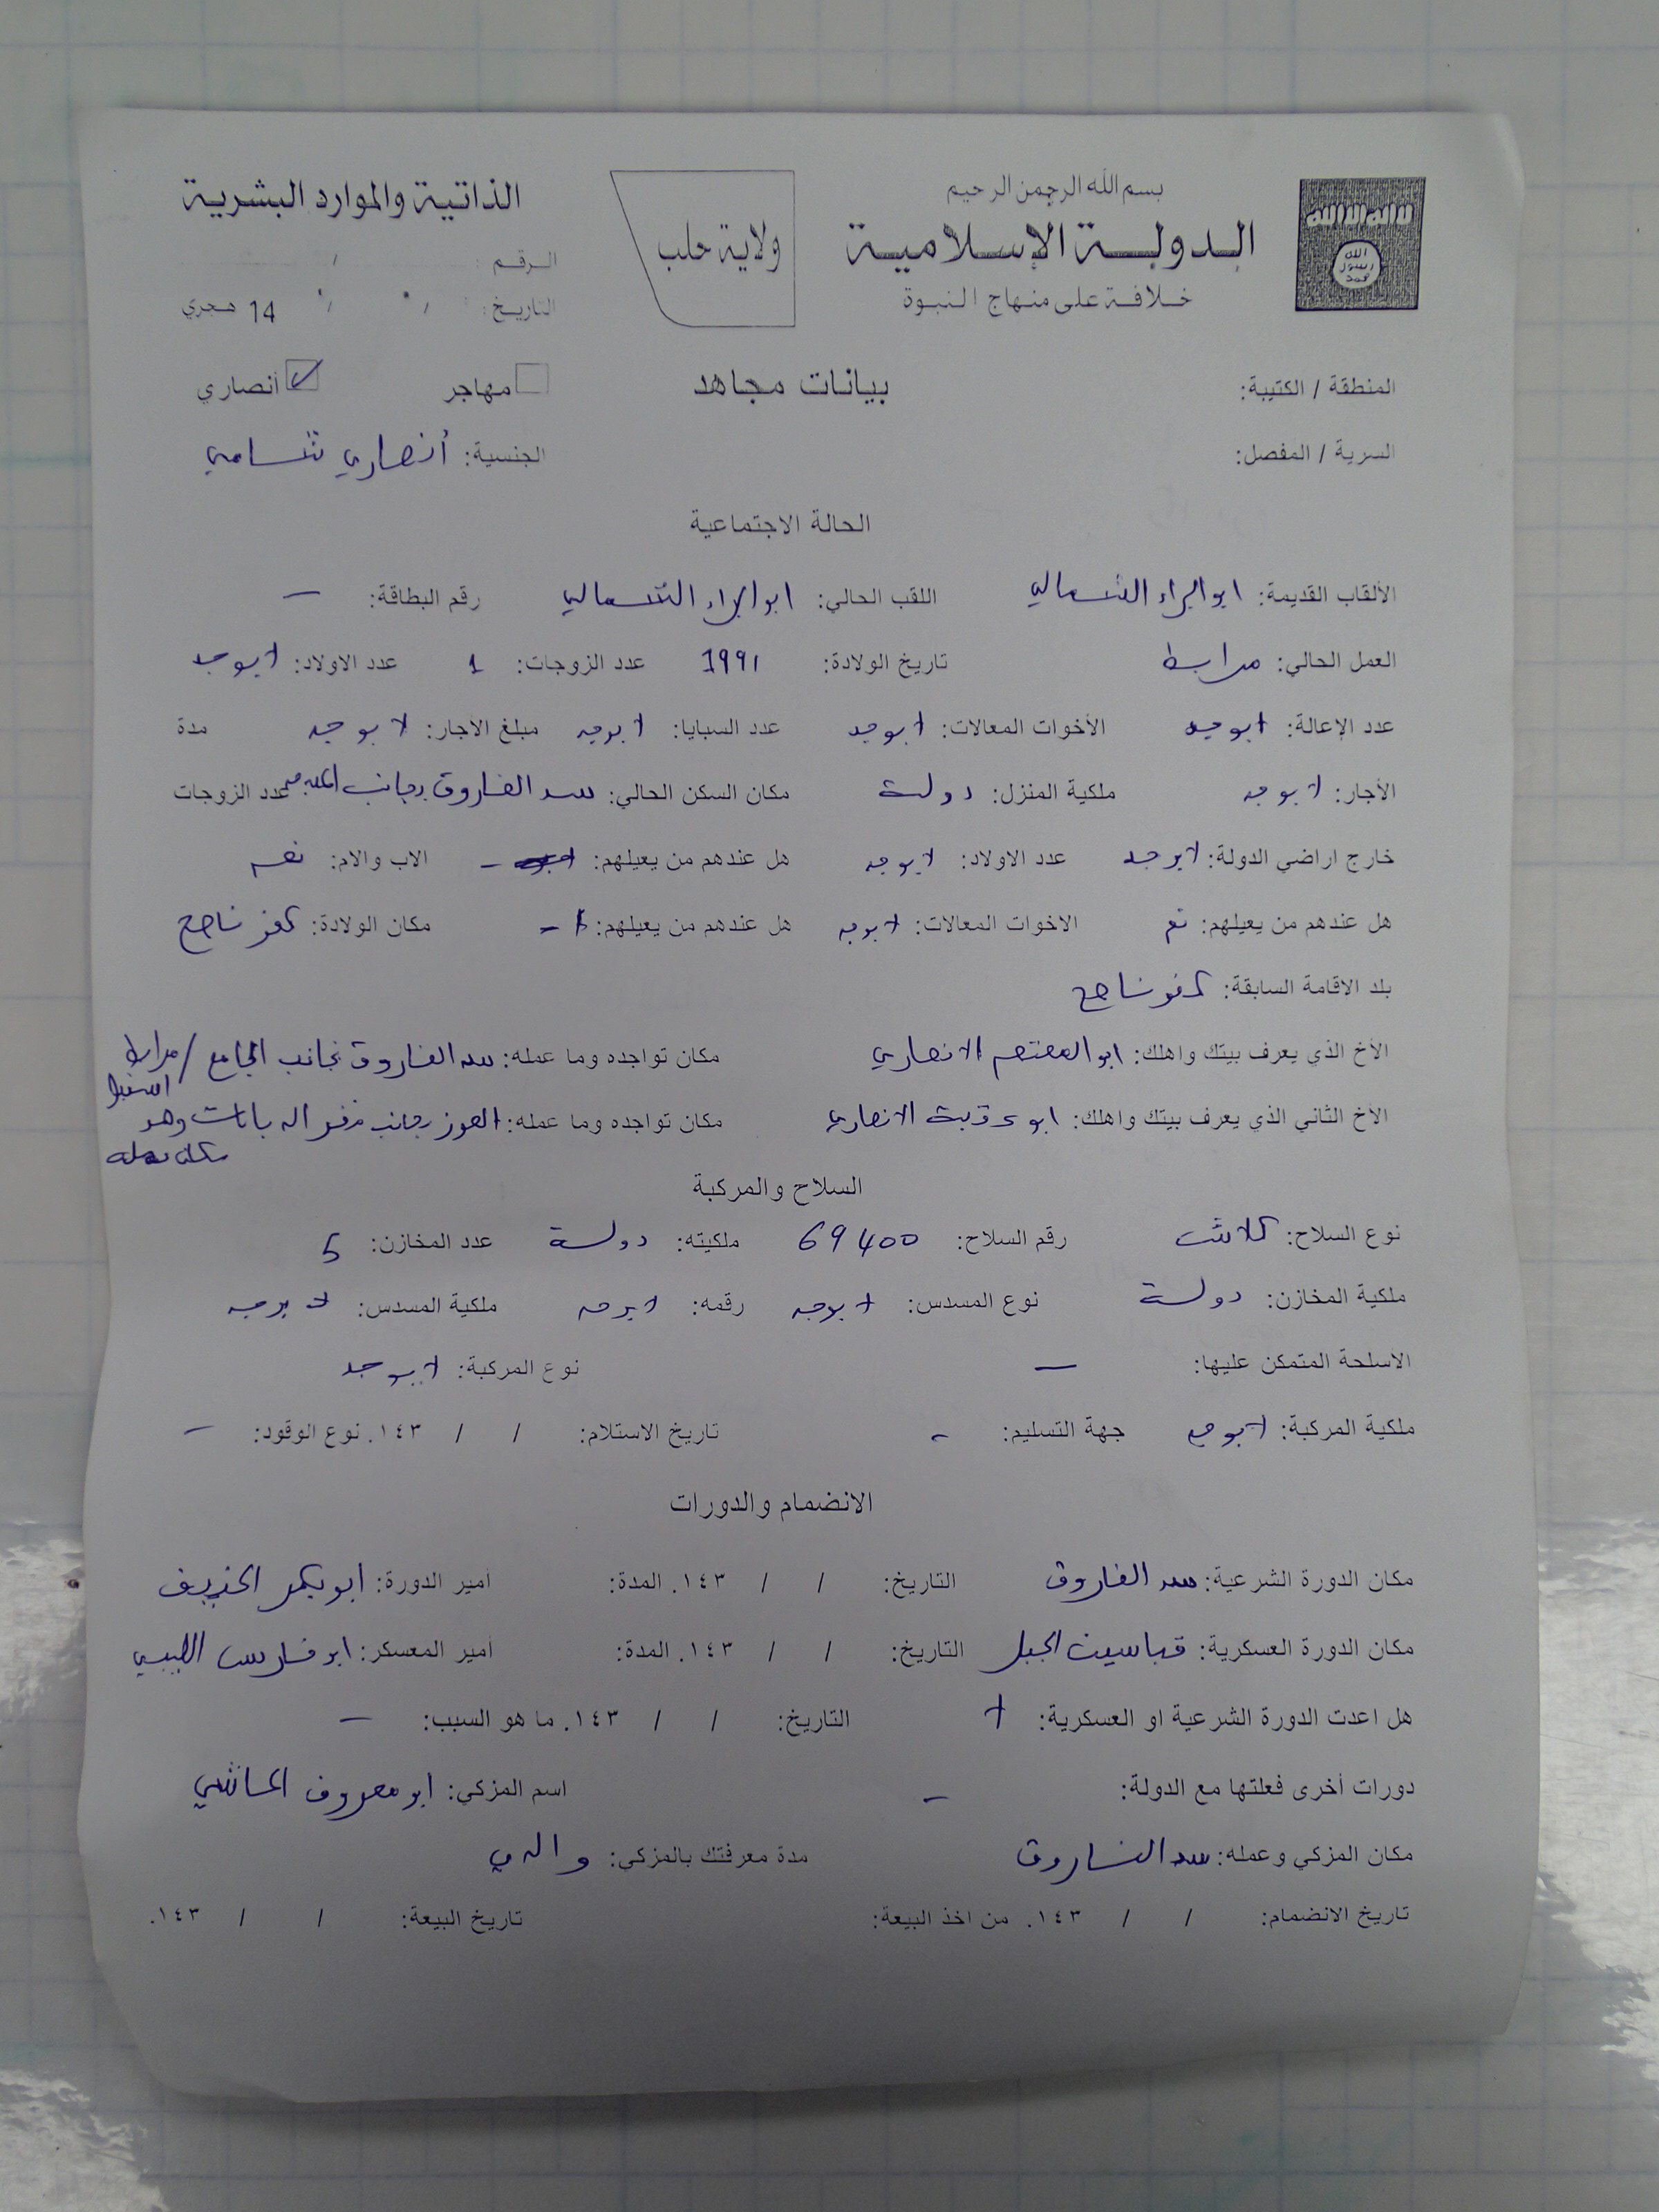 بسم الله الرحمن الرحيم
الدولة الإسلامية
خلافة على منهاج النبوة
لا اله الا الله
الله
رسول
محمد
ولاية حلب
الذاتية والموارد البشرية
الرقم : /
التاريخ : / / 14 هجري
المنطقة / الكتيبة: بيانات مجاهد مهاجر أنصاري
السرية / المفصل: الجنسية: أنصاري شامي
الحالة الاجتماعية
الألقاب القديمة: ابو البراء الشمالي اللقب الحالي: ابو البراء الشمالي رقم البطاقة: –
العمل الحالي: مرابط تاريخ الولادة: 1991 عدد الزوجات: 1 عدد الاولاد: لايوجد
عدد الإعالة: لايوجد الأخوات المعالات: لايوجد عدد السبايا: لايوجد مبلغ الأجار: لايوجد مدة
الأجار: لايوجد ملكية المنزل: دولة مكان السكن الحالي: سد الفاروق بجانب عدد الزوجات
خارج اراضي الدولة: لايوجد عدد الاولاد: لايوجد هل عندهم من يعيلهم: – الاب والام: نعم
هل عندهم من يعيلهم: نعم الاخوات المعالات: لايوجد هل عندهم من يعيلهم: – مكان الولادة: كفر ناصح
بلد الاقامة السابقة: كفر ناصح
الأخ الذي يعرف بيتك واهلك: ابو المعتصم الانصاري مكان تواجده وما عمله: سد الفاروق بجانب الجامع / مرابط
الأخ الثاني الذي يعرف بيتك واهلك: ابو الانصاري مكان تواجده وما عمله: بجانب وهو
مكان عمله
السلاح والمركبة
نوع السلاح: كلاشن رقم السلاح: 69400 ملكيته: دولة عدد المخازن: 5
ملكية المخازن: دولة نوع المسدس: لايوجد رقمه: لايوجد ملكية المسدس: لايوجد
الاسلحة المتمكن عليها: – نوع المركبة: لايوجد
ملكية المركبة: لايوجد جهة التسليم: – تاريخ الاستلام: / / ١٤٣. نوع الوقود: –
الانضمام والدورات
مكان الدورة الشرعية: سد الفاروق التاريخ: / / ١٤٣. المدة: أمير الدورة: ابو بكر
مكان الدورة العسكرية: الجبل التاريخ: / / ١٤٣. المدة: أمير المعسكر: ابو فارس
هل اعدت الدورة الشرعية او العسكرية: لا التاريخ: / / ١٤٣. ما هو السبب: –
دورات أخرى فعلتها مع الدولة: – اسم المزكي: ابو معروف
مكان المزكي وعمله: سد الفاروق مدة معرفتك بالمزكي: والدي
تاريخ الانضمام: / / ١٤٣. من اخذ البيعة: تاريخ البيعة: / / ١٤٣.